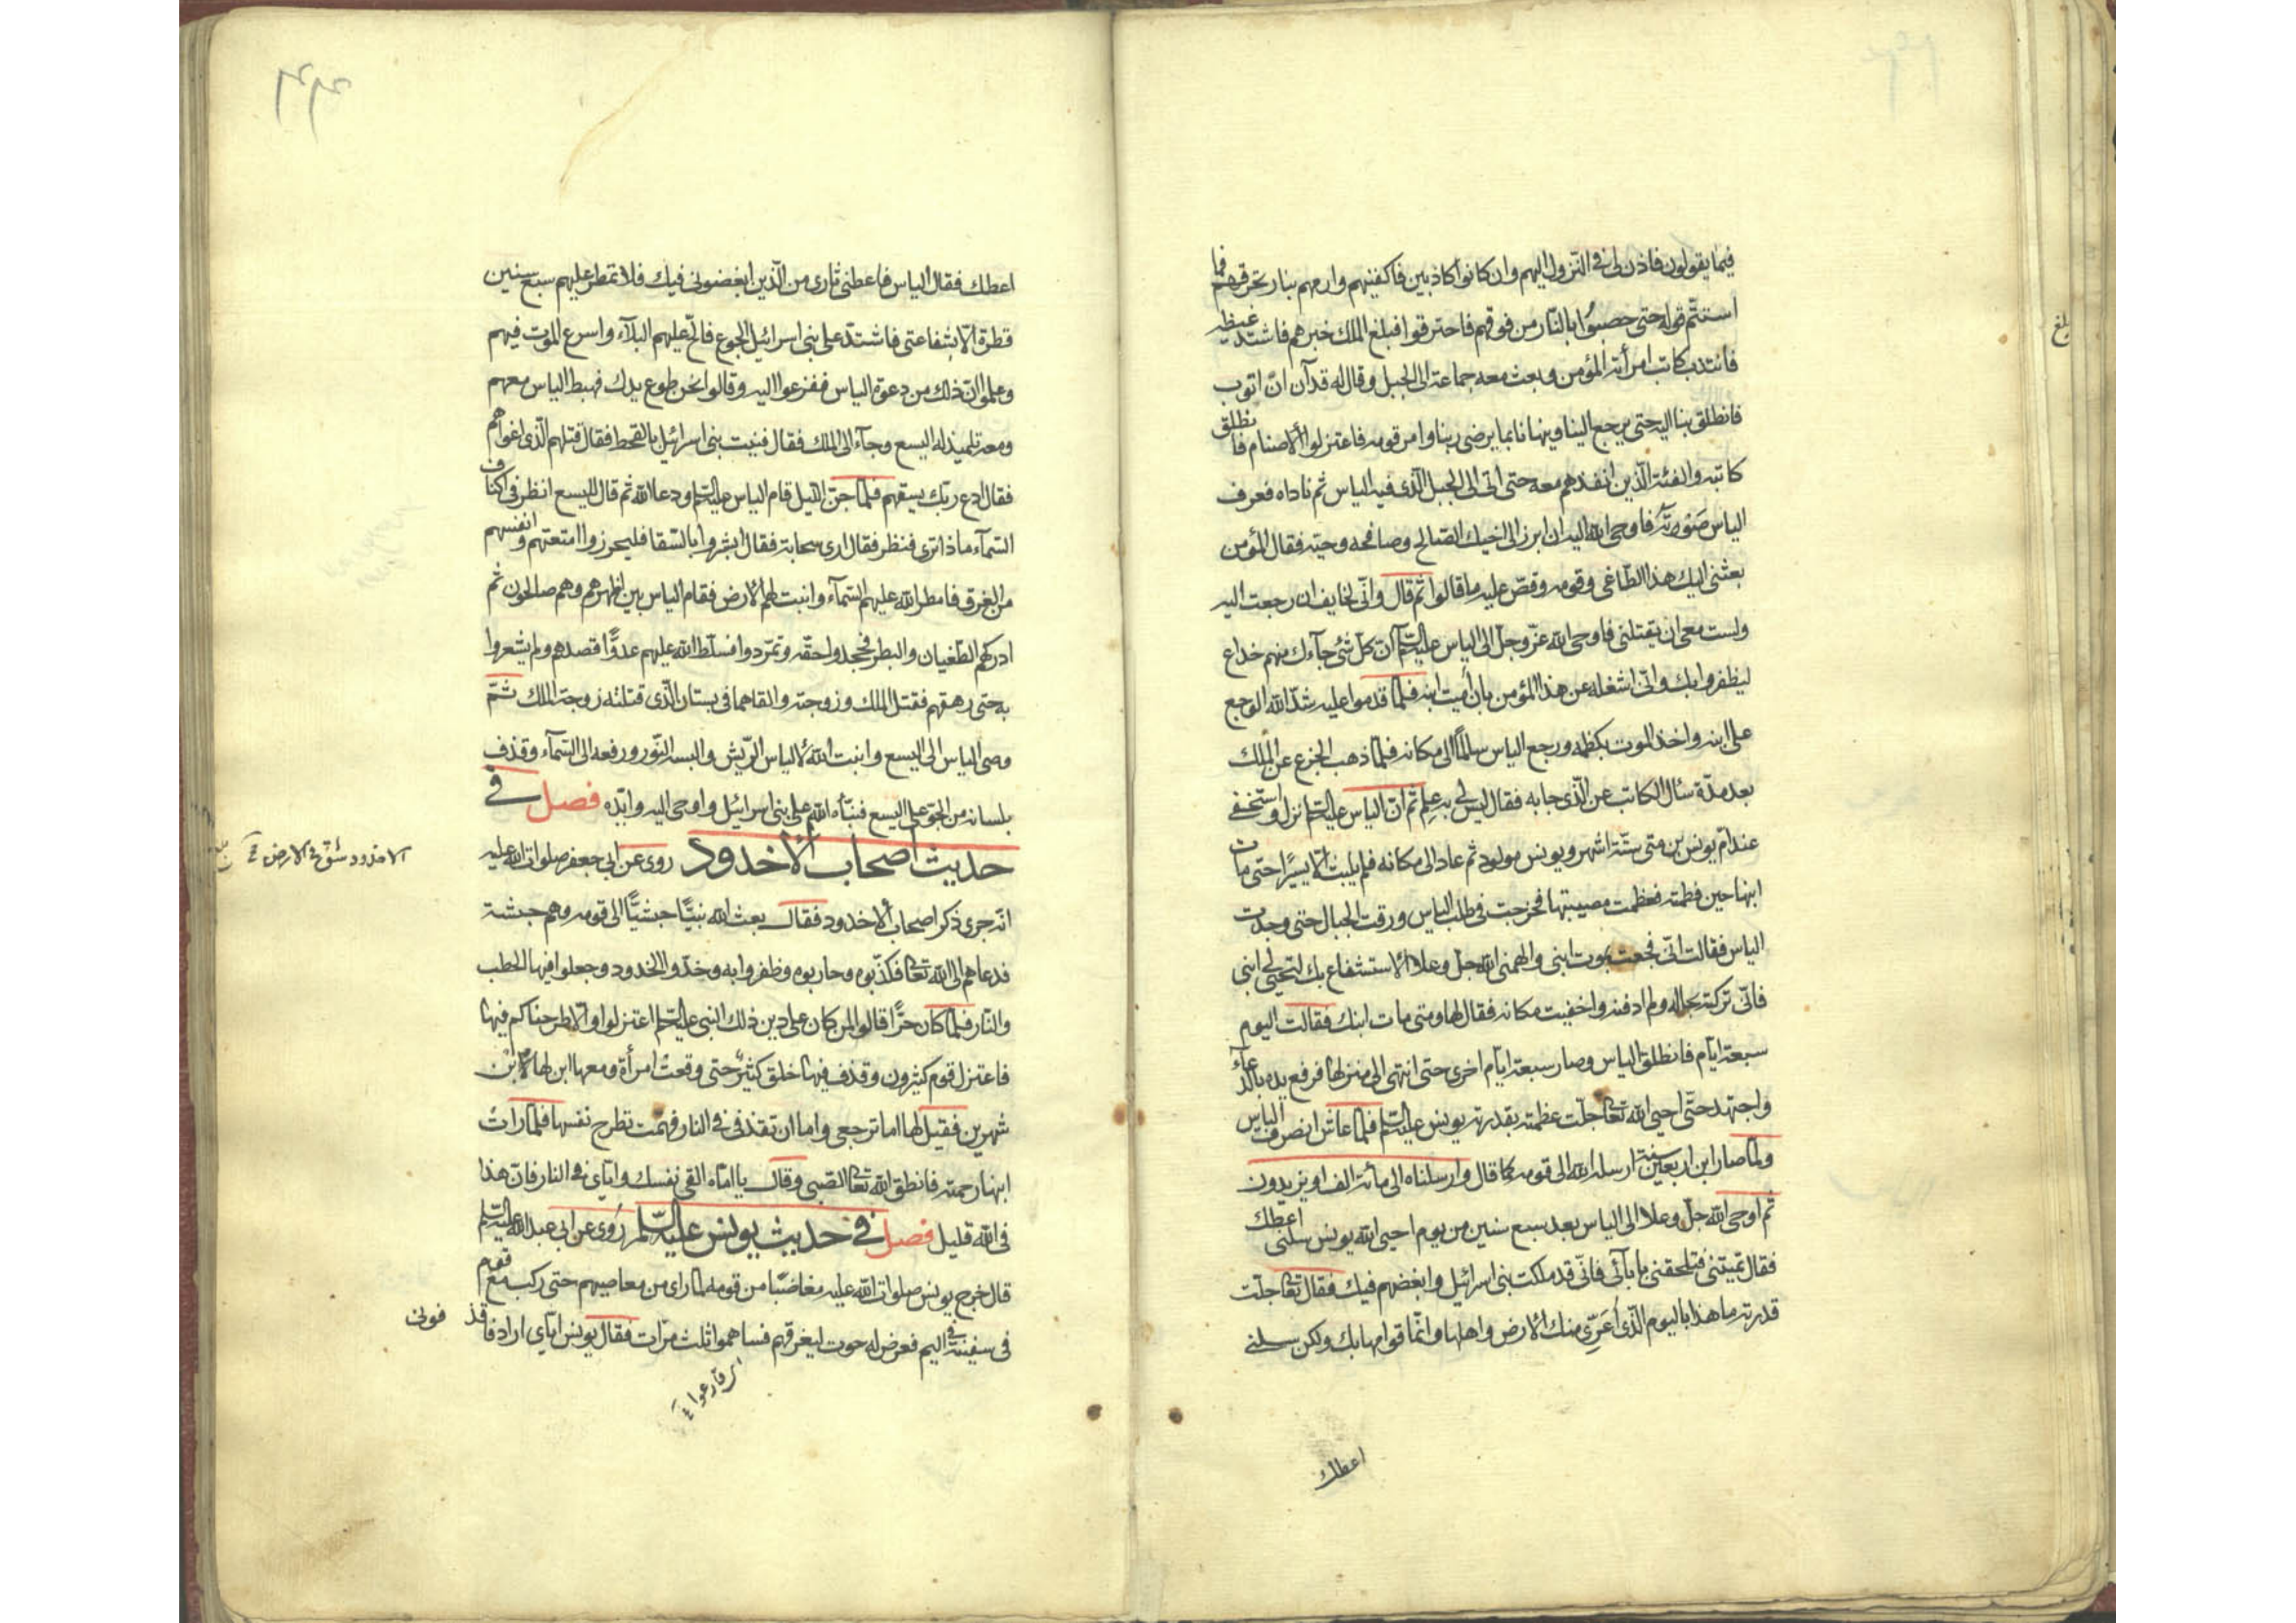 فيما يقولون فاذن لى فى النزول اليهم وان كانوا كاذبين فاكفنيهم وارمهم بنار تحرقهم فما
استتم قوله حتى حصبوا بالنار من فوقهم فاحترقوا فبلغ الملك خبرهم فاشتد غيظه
فانتدب كاتب امرأته المؤمن وبعث معه جماعة الى الجبل وقال له قد آن ان اتوب
فانطلق بنا اليه حتى يرجع الينا وينهانا بما يرضى ربنا وامر قومه فاعتزلوا الاصنام فانطلق
كاتبه والفئة الذين انفذهم معه حتى اتى الى الجبل الذى فيه الياس ثم ناداه فعرف
الياس صوته فاوحى الله اليه ان ابرز الى اخيك الصالح وصافحه وحيه فقال المؤمن
بعثنى اليك هذا الطاغى وقومه وقص عليه ما قالوا ثم قال وانى لخايف ان رجعت اليه
ولست معى ان يقتلنى فاوحى الله عز وجل الى الياس عليه السلم ان كل شئ جآءك منهم خداع
ليظفروا بك وانى اشغله عن هذا المؤمن بان اميت ابنه فلما قدموا عليه شد الله الوجع
على ابنه واخذ الموت بكظمه ورجع الياس سالما الى مكانه فلما ذهب الجزع عن الملك
بعد مدة سأل الكاتب عن الذى جا به فقال ليس لى به علم ثم ان الياس عليه السلم نزل واستخفى
عند ام يونس بن متى ستة اشهر ويونس مولود ثم عاد الى مكانه فلم يلبث الا يسيرا حتى مات
ابنها حين فطمته فعظمت مصيبتها فخرجت فى طلب الياس ورقت الجبال حتى وجدت
الياس فقالت انى فجعت بموت ابنى والهمنى الله جل وعلا الاستشفاع بك لتحيى لى ابنى
فانى تركته بحاله ولم ادفنه واخفيت مكانه فقال لها ومتى مات ابنك فقالت اليوم
سبعة ايام فانطلق الياس وصار سبعة ايام اخرى حتى انتهى الى منزلها فرفع يده بالدعآء
واجتهد حتى احيى الله تعالى جلت عظمته بقدرته يونس عليه السلم فلما عاش انصرف الياس
ولما صار ابن اربعين سنة ارسله الله الى قومه كما قال وارسلناه الى مائة الف او يزيدون
ثم اوحى الله جل وعلا الى الياس بعد سبع سنين من يوم احيى الله يونس سلنى اعطك
فقال تميتنى فتلحقنى بابآئى فانى قد ملكت بنى اسرائيل وابغضهم فيك فقال تعالى جلت
قدرته ما هذا باليوم الذى اعرى منك الارض واهلها وانما قوامها بك ولكن سلنى
اعطك
اعطك فقال الياس فاعطنى ثارى من الذين ابغضونى فيك فلا تمطر عليهم سبع سنين
قطرة الا بشفاعتى فاشتد على بنى اسرائيل الجوع فالح عليهم البلآء واسرع الموت فيهم
وعلموا ان ذلك من دعوة الياس ففزعوا اليه وقالوا نحن طوع يدك فهبط الياس معهم
ومعه تلميذ له اليسع وجآء الى الملك فقال فنيت بنى اسرائيل بالقحط فقال قتلهم الذى اغواهم
فقال ادع ربك يسقهم فلما جن الليل قام الياس عليه السلم ودعا الله ثم قال لليسع انظر فى اكناف
السمآء ماذا ترى فنظر فقال ارى سحابة فقال ابشروا بالسقا فليحرزوا امتعتهم وانفسهم
من الغرق فامطر الله عليهم السمآء وانبت لهم الارض فقام الياس بين اظهرهم وهم صالحون ثم
ادركهم الطغيان والبطر فجحدوا حقه وتمردوا فسلط الله عليهم عدوا قصدهم ولم يشعروا
به حتى رهقهم فقتل الملك وزوجته والقاهما فى بستان الذى قتلته زوجة الملك ثم
وصى الياس الى اليسع وانبت الله لالياس الريش والبسه النور ورفعه الى السمآء وقذف
بلسانه من الجو على اليسع فنبأه الله على بنى اسرائيل واوحى اليه وايده فصل فى
حديث اصحاب الاخدود روى عن ابى جعفر صلوات الله عليه
الاخدود شق فى الارض
انه جرى ذكر اصحاب الاخدود فقال بعث الله نبيا حبشيا الى قومه وهم حبشة
فدعاهم الى الله تعالى فكذبوه وحاربوه وظفروا به وخدوا الاخدود وجعلوا فيها الحطب
والنار فلما كان حرا قالوا لمن كان على دين ذلك النبى عليه السلم اعتزلوا والا طرحناكم فيها
فاعتزل قوم كثيرون وقذف فيها خلق كثير حتى وقعت امرأة ومعها ابن لها الابن
شهرين فقيل لها اما ترجعى واما ان تقذفى فى النار فهمت تطرح نفسها فلما رات
ابنها رحمته فانطق الله تعالى الصبى وقال يا اماه القى نفسك واياى فى النار فان هذا
فى الله قليل فصل فى حديث يونس عليه السلم روى عن ابى عبد الله عليه السلم
قال خرج يونس صلوات الله عليه مغاضبا من قومه لما راى من معاصيهم حتى ركب مع قوم
فى سفينة فى اليم فعرض له حوت ليغرقهم فساهموا ثلث مرات فقال يونس اياى اراد فاقذ فونى
اى قارعوا